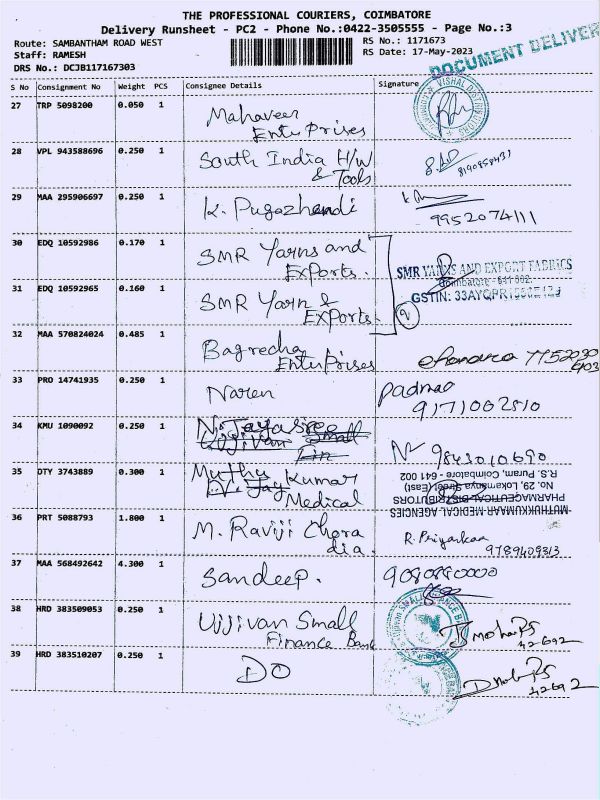 THE PROFESSIONAL COURIERS, COIMBATORE
Delivery Runsheet - PC2 - Phone No.:0422-3505555 - Page No.:3
Route: SAMBANTHAM ROAD WEST
RS No.: 1171673
Staff: RAMESH
RS Date: 17-May-2023
DRS No.: DCJB117167303
DOCUMENT DELIVER
S No Consignment No Weight PCS Consignee Details Signature
VISHAL DISTRI
27 TRP 5098200 0.050 1 Mahaveer
Enterprises
28 VPL 943588696 0.250 1 South India H/W
& Tools
8190858431
29 MAA 295906697 0.250 1 K. Pugazhendi
9952074111
30 EDQ 10592986 0.170 1 SMR Yarns and
Exports.
SMR YARNS AND EXPORT FABRICS
Coimbatore - 641 002.
31 EDQ 10592965 0.160 1 SMR Yarn &
Exports.
GSTIN: 33AYQPR
2
32 MAA 570824024 0.485 1 Bagrecha
Enterprises
33 PRO 14741935 0.250 1 Naren
Padmao
9171002810
34 KMU 1090092 0.250 1 N. Jayasree
Ujjivan Small
Fin
N 9843010690
35 DTY 3743889 0.300 1 Muthu Kumar
Medical
MUTHUKKUMAAR MEDICAL AGENCIES
PHARMACEUTICAL DISTRIBUTORS
No. 29, Lokamanya Street (East)
R.S. Puram, Coimbatore - 641 002
36 PRT 5088793 1.800 1 M. Raviji Chora
dia.
R. Priyankaa
9789409313
37 MAA 568492642 4.300 1 Sandeep.
9080880000
38 HRD 383509053 0.250 1 Ujjivan Small
Finance Bank
42692
39 HRD 383510207 0.250 1 DO
42692